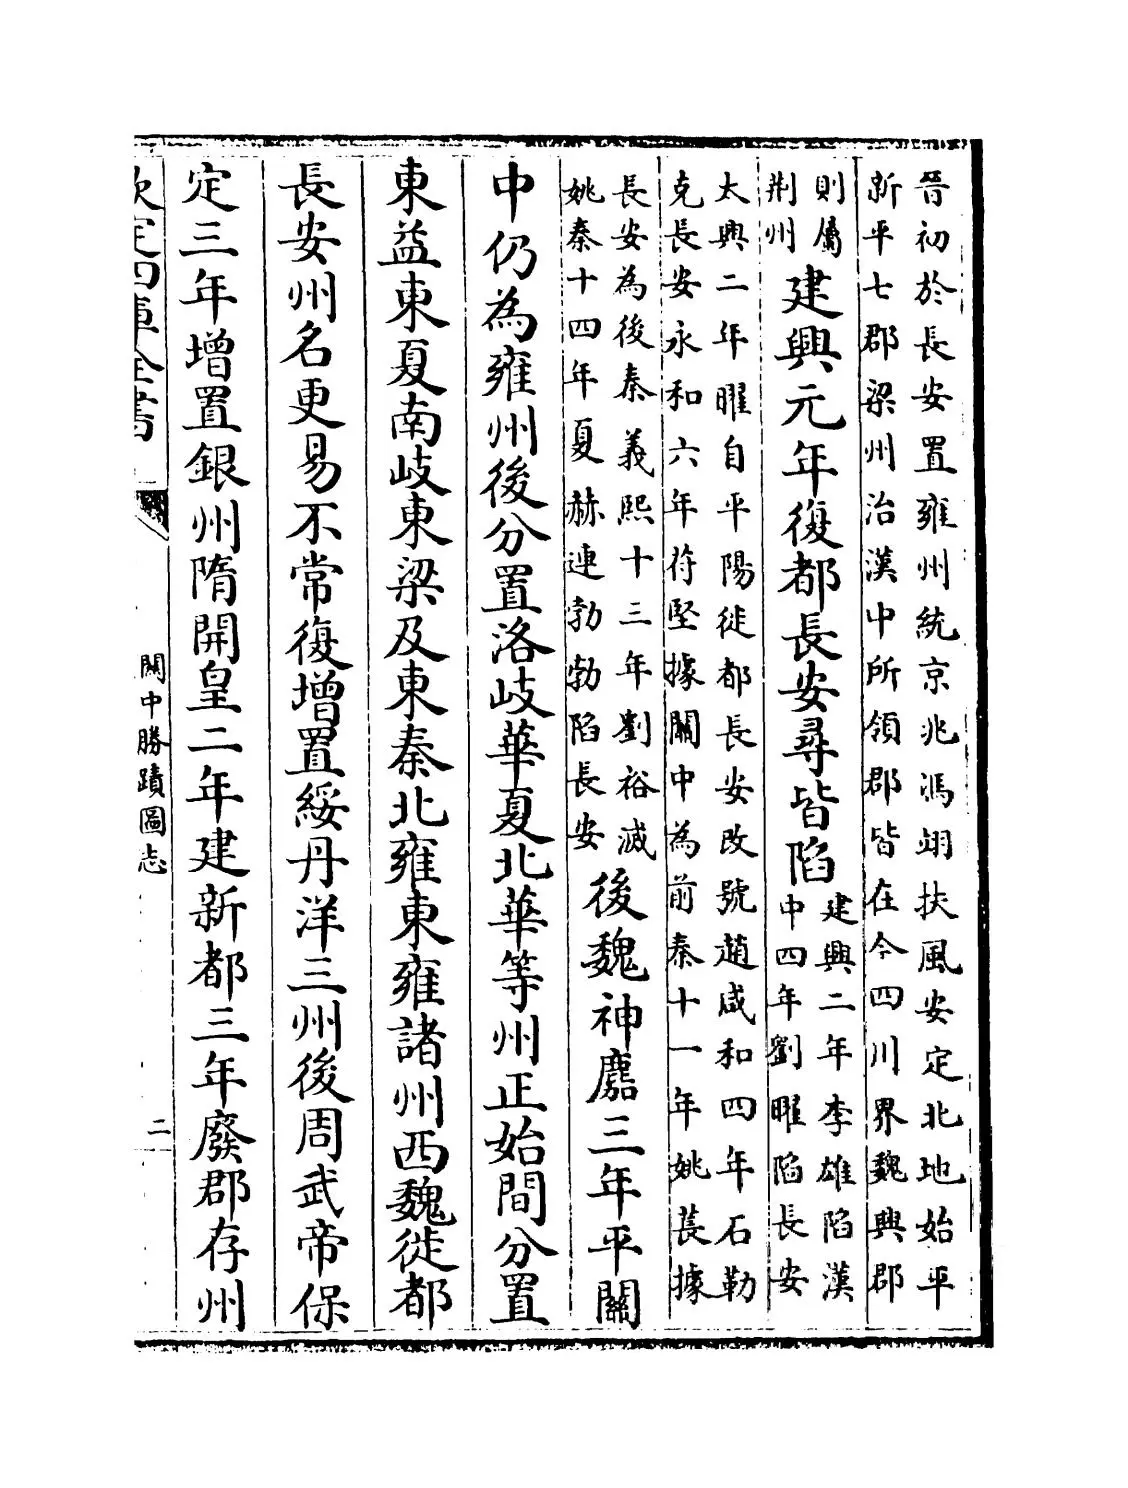 晉初於長安置雍州統京兆馮翊扶風安定北地始平
新平七郡梁州治漢中所領郡皆在今四川界魏興郡
則屬
荆州
建興元年復都長安尋皆陷
建興二年李雄陷漢
中四年劉曜陷長安
太興二年曜自平陽徙都長安改號趙咸和四年石勒
克長安永和六年苻堅據關中為前秦十一年姚萇據
長安為後秦義熙十三年劉裕滅
姚秦十四年夏赫連勃勃陷長安
後魏神䴥三年平關
中仍為雍州後分置洛岐華夏北華等州正始間分置
東益東夏南岐東梁及東秦北雍東雍諸州西魏徙都
長安州名更易不常復增置綏丹洋三州後周武帝保
定三年增置銀州隋開皇二年建新都三年廢郡存州
欽定四庫全書
關中勝蹟圖志
二